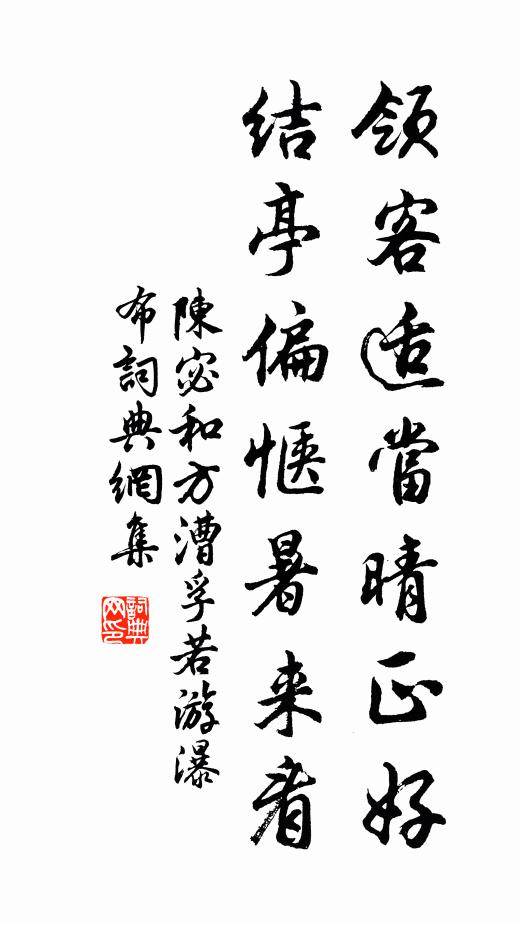 領客适當晴正好
結亭偏惬暑来看
陳宓和方漕孚若游瀑
布詞典網集
詞典网印